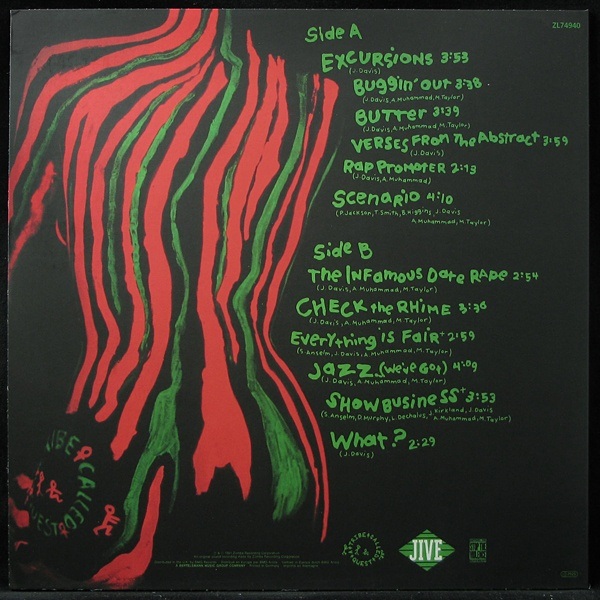 ZL74940
Side A
EXCURSIONS 3:53
(J. Davis)
Buggin' out 3:38
(J. Davis, A. Muhammad, M. Taylor)
BUTTER 3:39
(J. Davis, A. Muhammad, M. Taylor)
VERSES FROM The Abstract 3:59
(J. Davis)
Rap PROMOTER 2:13
(J. Davis, A. Muhammad)
SCENARIO 4:10
(P. Jackson, T. Smith, B. Higgins, J. Davis
A. Muhammad, M. Taylor)
Side B
The INFamous Date RAPE 2:54
(J. Davis, A. Muhammad, M. Taylor)
CHECK the RHIME 3:36
(J. Davis, A. Muhammad, M. Taylor)
Everything is Fair+ 2:59
(S. Anselm, J. Davis, A. Muhammad, M. Taylor)
JAZZ (We've Got) 4:09
(J. Davis, A. Muhammad, M. Taylor)
SHOW BUSINESS+ 3:53
(S. Anselm, D. Murphy, L. Dechalus, J. Kirkland, J. Davis
A. Muhammad, M. Taylor)
What? 2:29
(J. Davis)
CALLED
JIVE